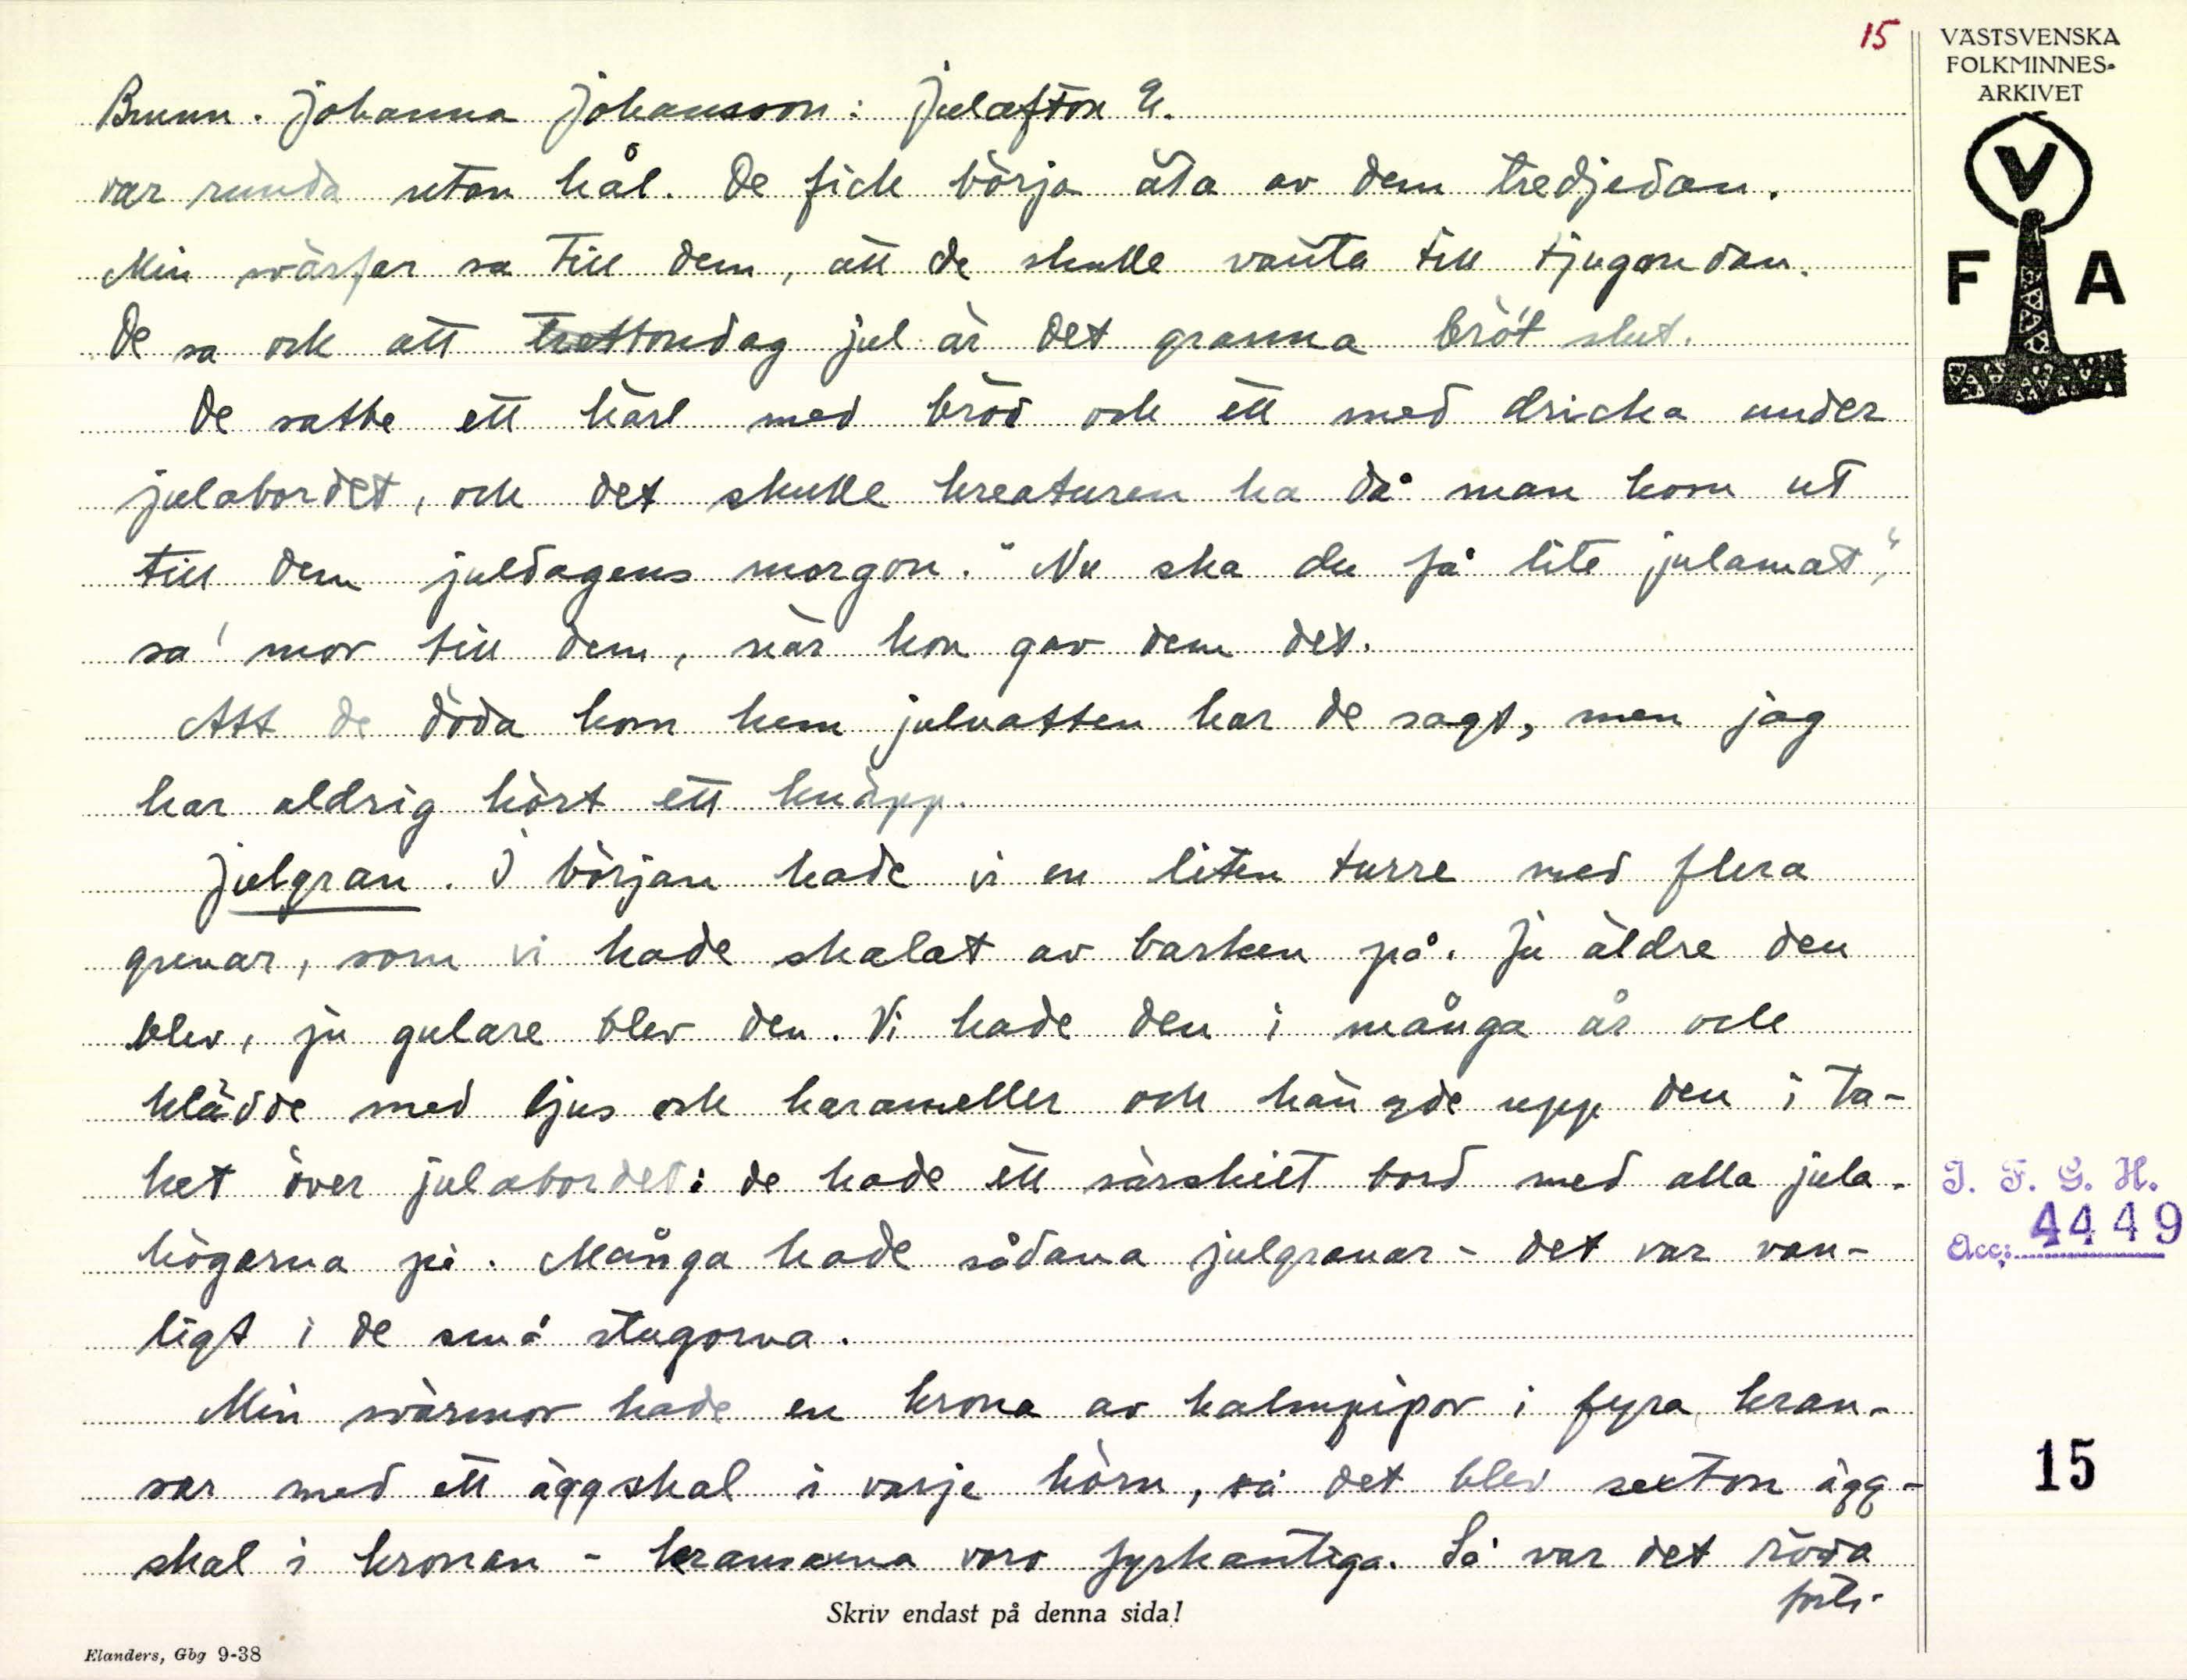 15
VÄSTSVENSKA
FOLKMINNES-
ARKIVET
V
F A
Brunn. Johanna Johansson: Julafton
var runda utan hål. De fick börja äta av dem tredjedan.
Min svärfar sa till dem, att de skulle vänta till tjugondan.
De sa och att trettondag jul är det granna bröt slut.
De satte ett kärl med bröd och ett med dricka under
julabordet, och det skulle kreaturen ha då man kom ut
till dem juldagens morgon. "Nu ska du få lite julamat",
sa' mor till dem, när hon gav dem det.
Att de döda kom hem julnatten har de sagt, men jag
har aldrig hört ett knäpp.
Julgran. I början hade vi en liten turre med flera
grenar, som vi hade skalat av barken på. Ju äldre den
blev, ju gulare blev den. Vi hade den i många år och
klädde med ljus och karameller och hängde upp den i ta-
ket över julabordet: de hade ett särskilt bord med alla jula-
högarna på. Många hade sådana julgranar - det var van-
ligt i de små stugorna.
Min svärmor hade en krona av halmpipor i fyra kran-
sar med ett äggskal i varje hörn, så det blev sexton ägg-
skal i kronan - kransarna voro fyrkantiga. Så var det röda
forts.
I. F. G. H.
Acc: 4449
15
Skriv endast på denna sida!
Elanders, Gbg 9-38